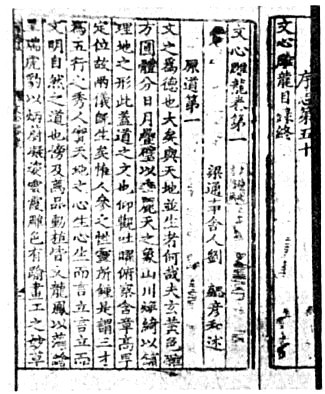 序志第五十
文心雕龍目録終
文心雕龍卷第一
梁通事舍人劉 勰彥和述
原道第一
文之爲德也大矣與天地並生者何哉夫玄黃色雜
方圓體分日月疊璧以垂麗天之象山川煥綺以鋪
理地之形此蓋道之文也仰觀吐曜俯察含章高卑
定位故兩儀既生矣惟人參之性靈所鍾是謂三才
爲五行之秀人實天地之心生心生而言立言立而
文明自然之道也傍及萬品動植皆文龍鳳以藻繪
呈瑞虎豹以炳蔚凝姿雲霞雕色有踰畫工之妙草